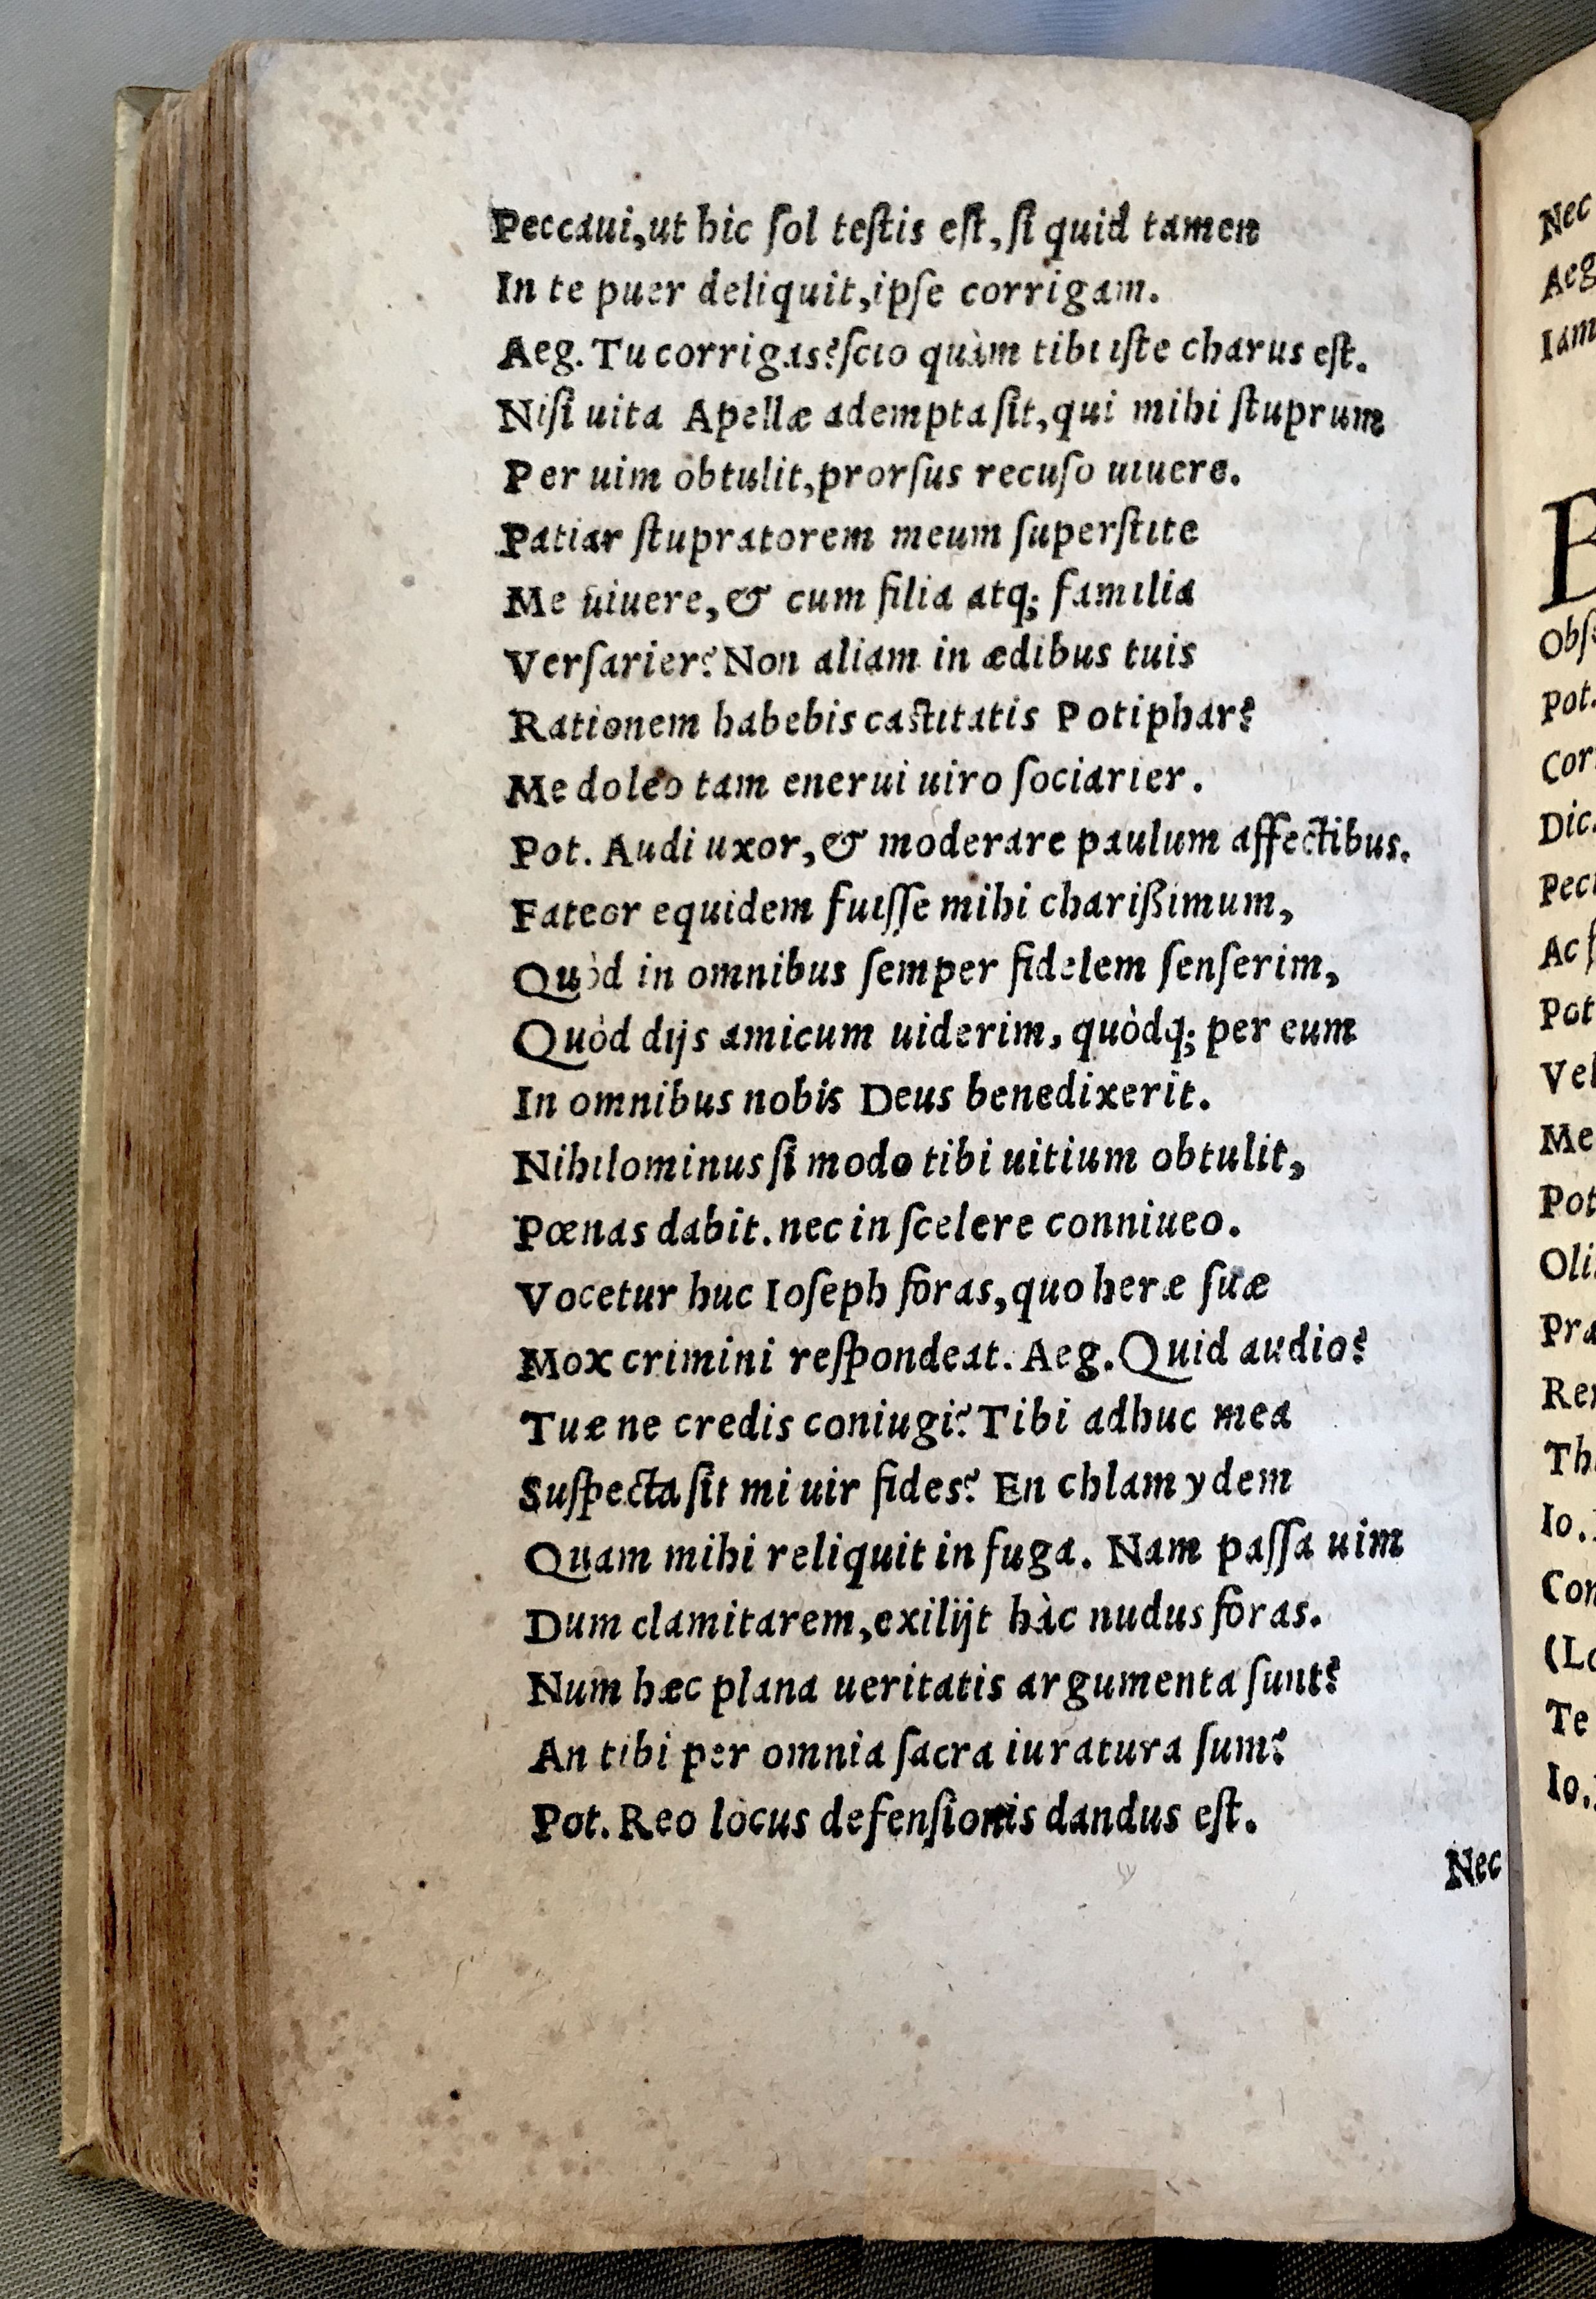 Peccaui,ut hic ſol teſtis eſt,ſi quid tamen
In te puer deliquit,ipſe corrigam.
Aeg. Tu corrigas?ſcio quàm tibi iſte charus eſt.
Niſi uita Apellæ adempta ſit,qui mihi ſtuprum
Per uim obtulit,prorſus recuſo uiuere.
Patiar ſtupratorem meum ſuperſtite
Me uiuere,& cum filia atq; familia
Verſarier? Non aliam in ædibus tuis
Rationem habebis caſtitatis Potiphar?
Me doleo tam enerui uiro ſociarier.
Pot. Audi uxor,& moderare paulum affectibus.
Fateor equidem fuiſſe mihi charißimum,
Quòd in omnibus ſemper fidelem ſenſerim,
Quòd dijs amicum uiderim, quòdq; per eum
In omnibus nobis Deus benedixerit.
Nihilominus ſi modo tibi uitium obtulit,
Pœnas dabit. nec in ſcelere conniueo.
Vocetur huc Ioſeph foras,quo heræ ſuæ
Mox crimini reſpondeat. Aeg. Quid audio?
Tuæ ne credis coniugi? Tibi adhuc mea
Suſpecta ſit mi uir fides? En chlamydem
Quam mihi reliquit in fuga. Nam paſſa uim
Dum clamitarem,exilijt hàc nudus foras.
Num hæc plana ueritatis argumenta ſunt?
An tibi per omnia ſacra iuratura ſum?
Pot. Reo locus defenſionis dandus eſt.
Nec
Nec
Aeg
Iam
Obſ
Pot.
Cor
Dic.
Pec
Ac ſ
Pot
Vel
Me
Pot
Oli
Præ
Rer
Th
Io.
Con
(Lo
Te
Io.